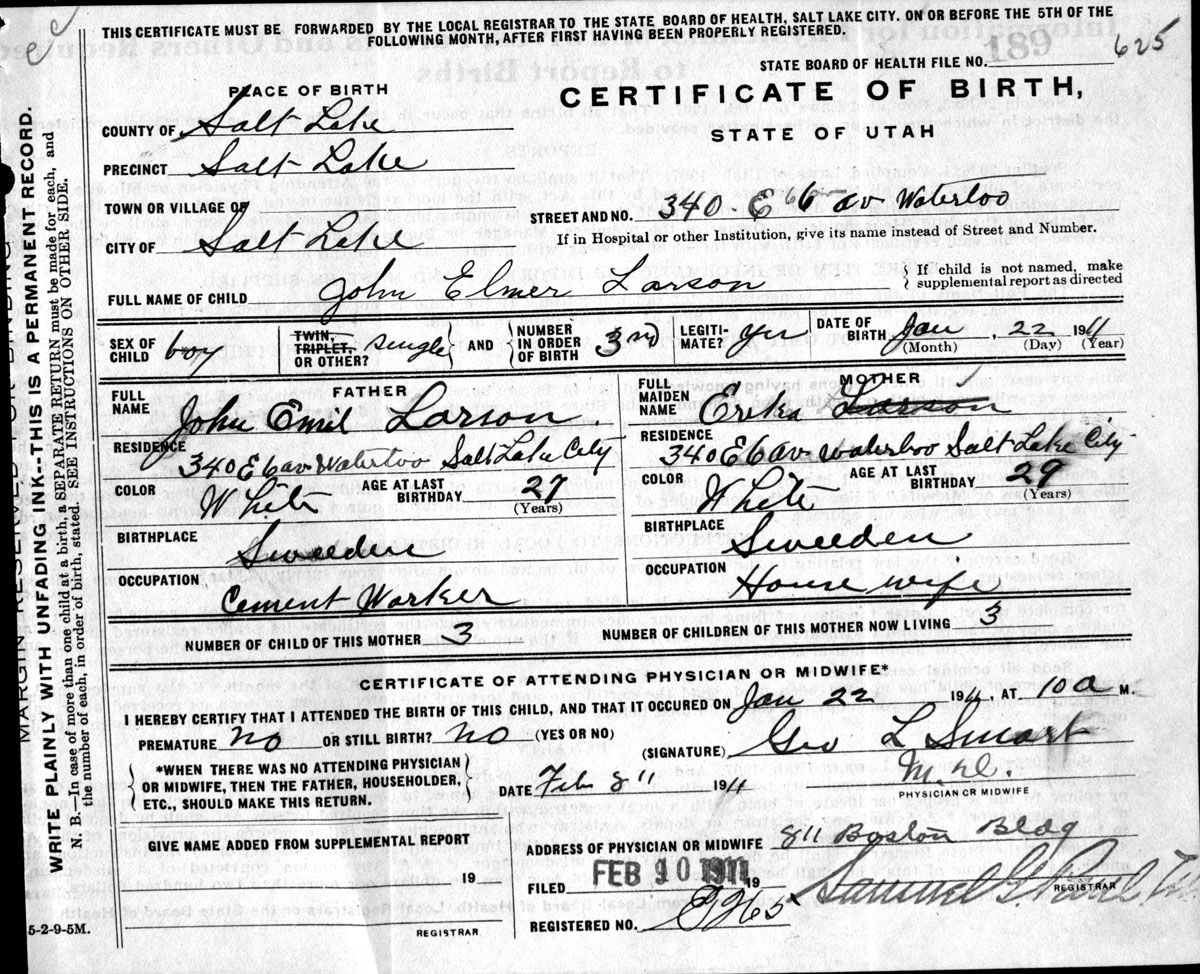 THIS CERTIFICATE MUST BE FORWARDED BY THE LOCAL REGISTRAR TO THE STATE BOARD OF HEALTH, SALT LAKE CITY. ON OR BEFORE THE 5TH OF THE
FOLLOWING MONTH, AFTER FIRST HAVING BEEN PROPERLY REGISTERED.
189
625
STATE BOARD OF HEALTH FILE NO.
PLACE OF BIRTH
CERTIFICATE OF BIRTH,
STATE OF UTAH
COUNTY OF Salt Lake
PRECINCT Salt Lake
TOWN OR VILLAGE OF
STREET AND NO. 340 E 6 av Waterloo
CITY OF Salt Lake
If in Hospital or other Institution, give its name instead of Street and Number.
FULL NAME OF CHILD John Elmer Larson
If child is not named, make
supplemental report as directed
SEX OF CHILD boy
TWIN, TRIPLET, OR OTHER? single
AND
NUMBER IN ORDER OF BIRTH 3rd
LEGITIMATE? yes
DATE OF BIRTH Jan 22 1911
(Month) (Day) (Year)
FATHER
FULL NAME John Emil Larson.
RESIDENCE
340 E 6 av Waterloo Salt Lake City
COLOR White
AGE AT LAST BIRTHDAY 27
(Years)
BIRTHPLACE
Sweeden
OCCUPATION
Cement Worker
MOTHER
FULL MAIDEN NAME Erika Larson
RESIDENCE
340 E 6 av Waterloo Salt Lake City
COLOR White
AGE AT LAST BIRTHDAY 29
(Years)
BIRTHPLACE
Sweeden
OCCUPATION
House wife
NUMBER OF CHILD OF THIS MOTHER 3
NUMBER OF CHILDREN OF THIS MOTHER NOW LIVING 3
CERTIFICATE OF ATTENDING PHYSICIAN OR MIDWIFE*
I HEREBY CERTIFY THAT I ATTENDED THE BIRTH OF THIS CHILD, AND THAT IT OCCURED ON Jan 22 1911, AT 10 a M.
PREMATURE no OR STILL BIRTH? no (YES OR NO)
(SIGNATURE) Geo L Smart
M.D.
PHYSICIAN OR MIDWIFE
*WHEN THERE WAS NO ATTENDING PHYSICIAN
OR MIDWIFE, THEN THE FATHER, HOUSEHOLDER,
ETC., SHOULD MAKE THIS RETURN.
DATE Feb 1911
GIVE NAME ADDED FROM SUPPLEMENTAL REPORT
19
REGISTRAR
ADDRESS OF PHYSICIAN OR MIDWIFE 811 Boston Bldg
FILED FEB 10 1911 19
Samuel G
REGISTRAR
REGISTERED NO.
5-2-9-5M.
MARGIN RESERVED FOR BINDING
WRITE PLAINLY WITH UNFADING INK--THIS IS A PERMANENT RECORD.
N. B.—In case of more than one child at a birth, a SEPARATE RETURN must be made for each, and
the number of each, in order of birth, stated. SEE INSTRUCTIONS ON OTHER SIDE.